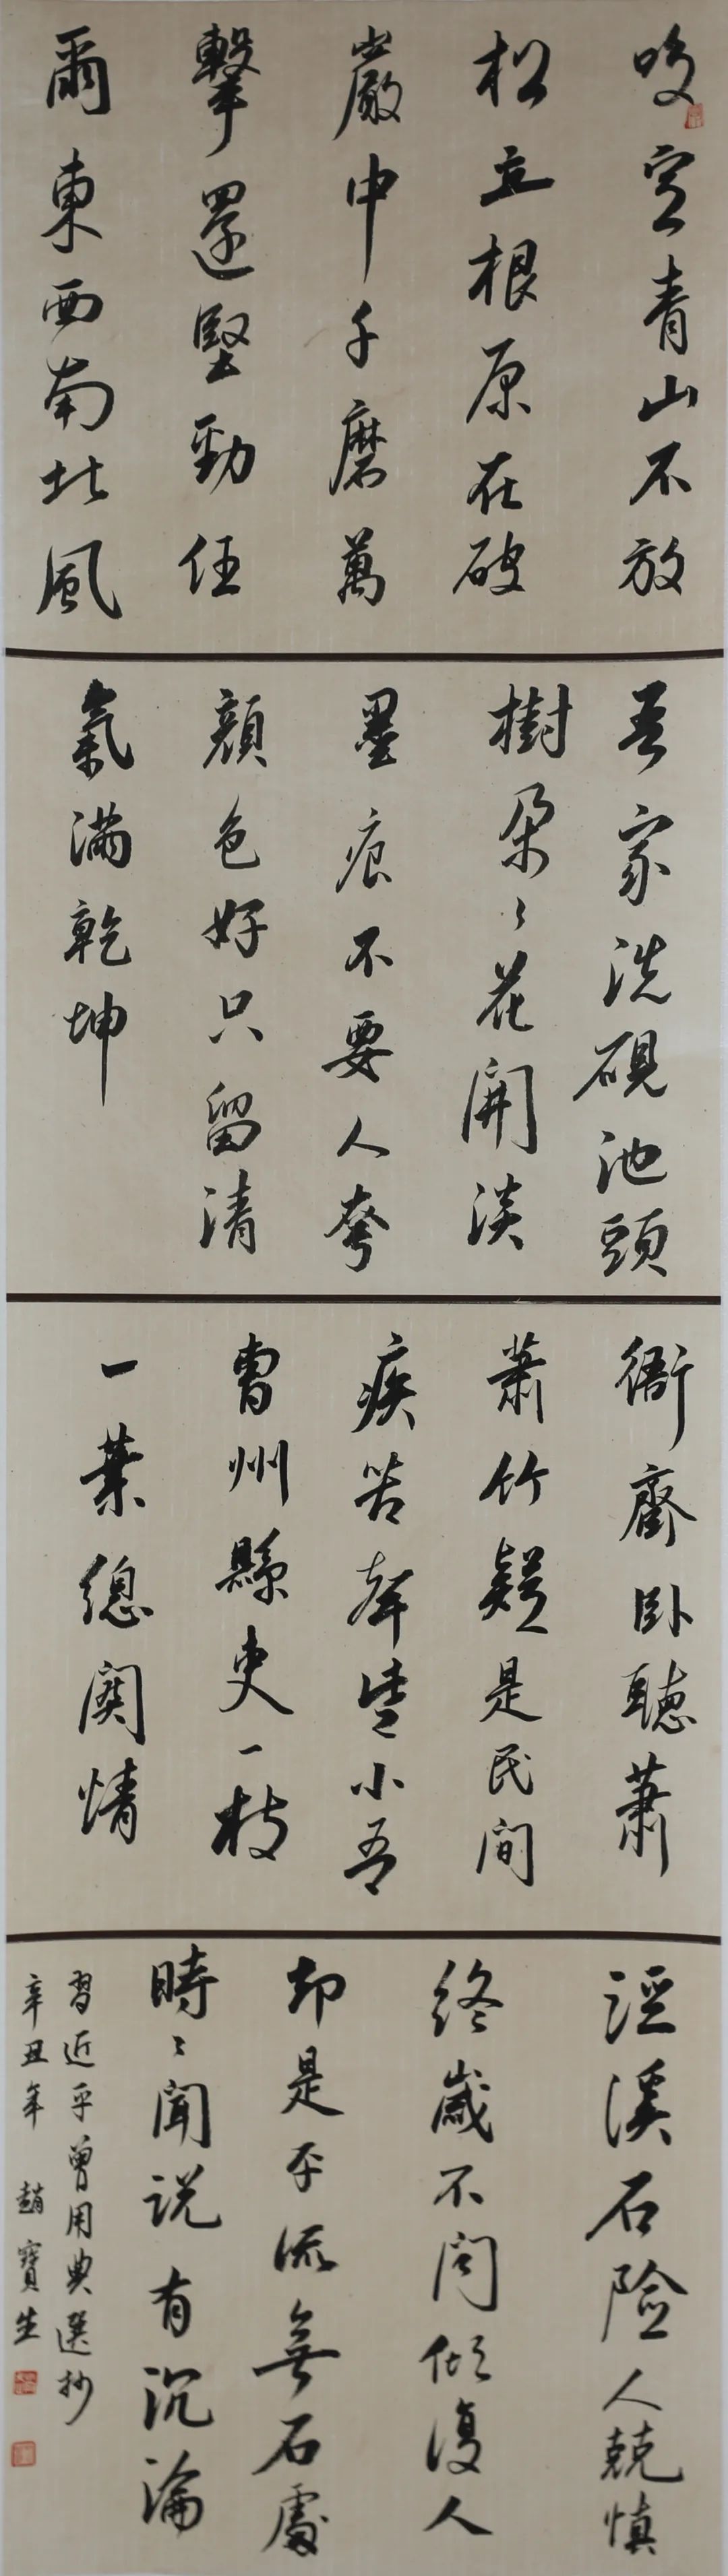 咬定青山不放
松立根原在破
巖中千磨萬
擊還堅勁任
爾東西南北風
吾家洗硯池頭
樹朵々花開淡
墨痕不要人夸
顏色好只留清
氣滿乾坤
衙齋卧聽蕭
蕭竹疑是民間
疾苦聲些小吾
曹州縣吏一枝
一葉總關情
涇溪石險人兢慎
終歲不聞傾覆人
却是平流無石處
時々聞説有沉淪
習近平曾用典選抄
辛丑年 趙寶生